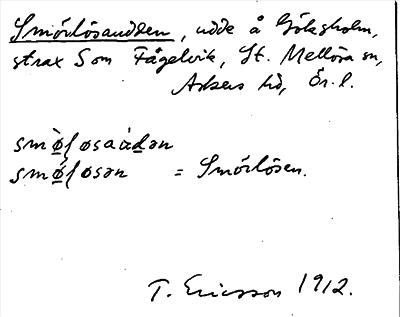 Smörlösaudden, udde å Göksholm,
strax S om Fågelvik, St. Mellösa sn,
Askers hd, Ör. l.
smø̀ɭøsaàdən
smǿɭøsən = Smörlösen.
T. Ericsson 1912.